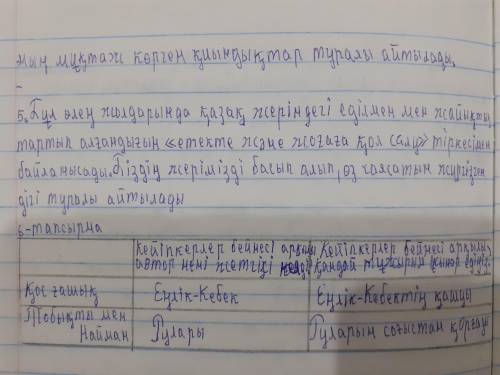 ның мұқтаж көрген қиындықтар туралы айтылады.
-
5. Бұл өлең жолдарында қазақ жеріндегі еділмен мен жайықты
тартып алғандығын «етекте және жағаға қол салу» тіркесімен
байланысады. Біздің жерімізді басып алып, өз саясатын жүргізген
дігі туралы айтылады
6-тапсырма
Кейіпкерлер бейнесі арқылы Кейіпкерлер бейнесі арқылы
автор нені жеткізгі келді қандай тұжырым
Қос ғашық Еңлік-Кебек Еңлік-Кебектің қашуы
Тобықты мен
Найман Рулары Руларын соғыстан қорғады